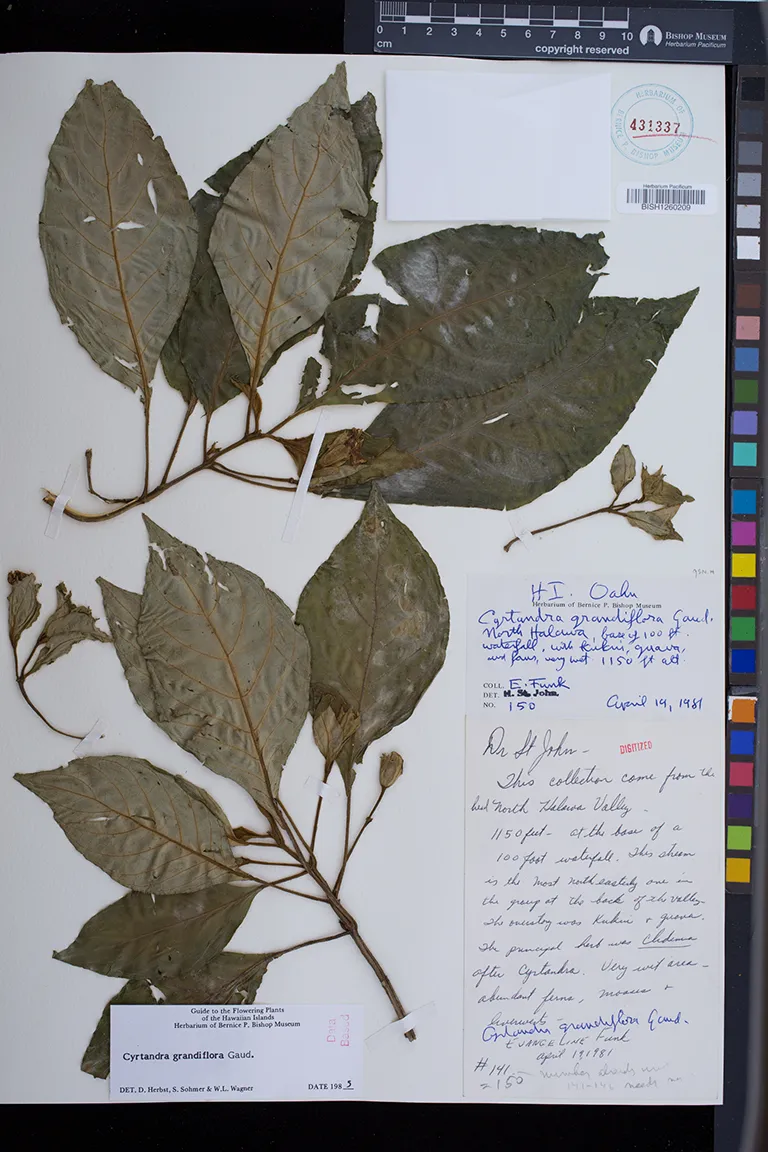 0 1 2 3 4 5 6 7 8 9 10
cm
copyright reserved
BISHOP MUSEUM
Herbarium Pacificum
HERBARIUM OF
BERNICE P. BISHOP MUSEUM
431337
Herbarium Pacificum
BISH1260209
HI. Oahu
Herbarium of Bernice P. Bishop Museum
Cyrtandra grandiflora Gaud.
North Halawa, base of 100 ft.
waterfall, with Kukui, guava,
and ferns, very wet 1150 ft alt.
COLL. E. Funk
DET. H. St. John
NO. 150 April 19, 1981
Dr St John –
DIGITIZED
This collection came from the
North Halawa Valley –
1150 feet – at the base of a
100 foot waterfall. This stream
is the most northeasterly one in
the group at the back of the valley.
The overstory was Kukui + guava.
The principal herb was Clidemia
after Cyrtandra. Very wet area –
abundant ferns, mosses +
liverworts –
Cyrtandra grandiflora Gaud.
EVANGELINE Funk
april 19 1981
#141
=150 number should
141-146 needs
Guide to the Flowering Plants
of the Hawaiian Islands
Herbarium of Bernice P. Bishop Museum
Data
Based
Cyrtandra grandiflora Gaud.
DET. D. Herbst, S. Sohmer & W.L. Wagner DATE 1985